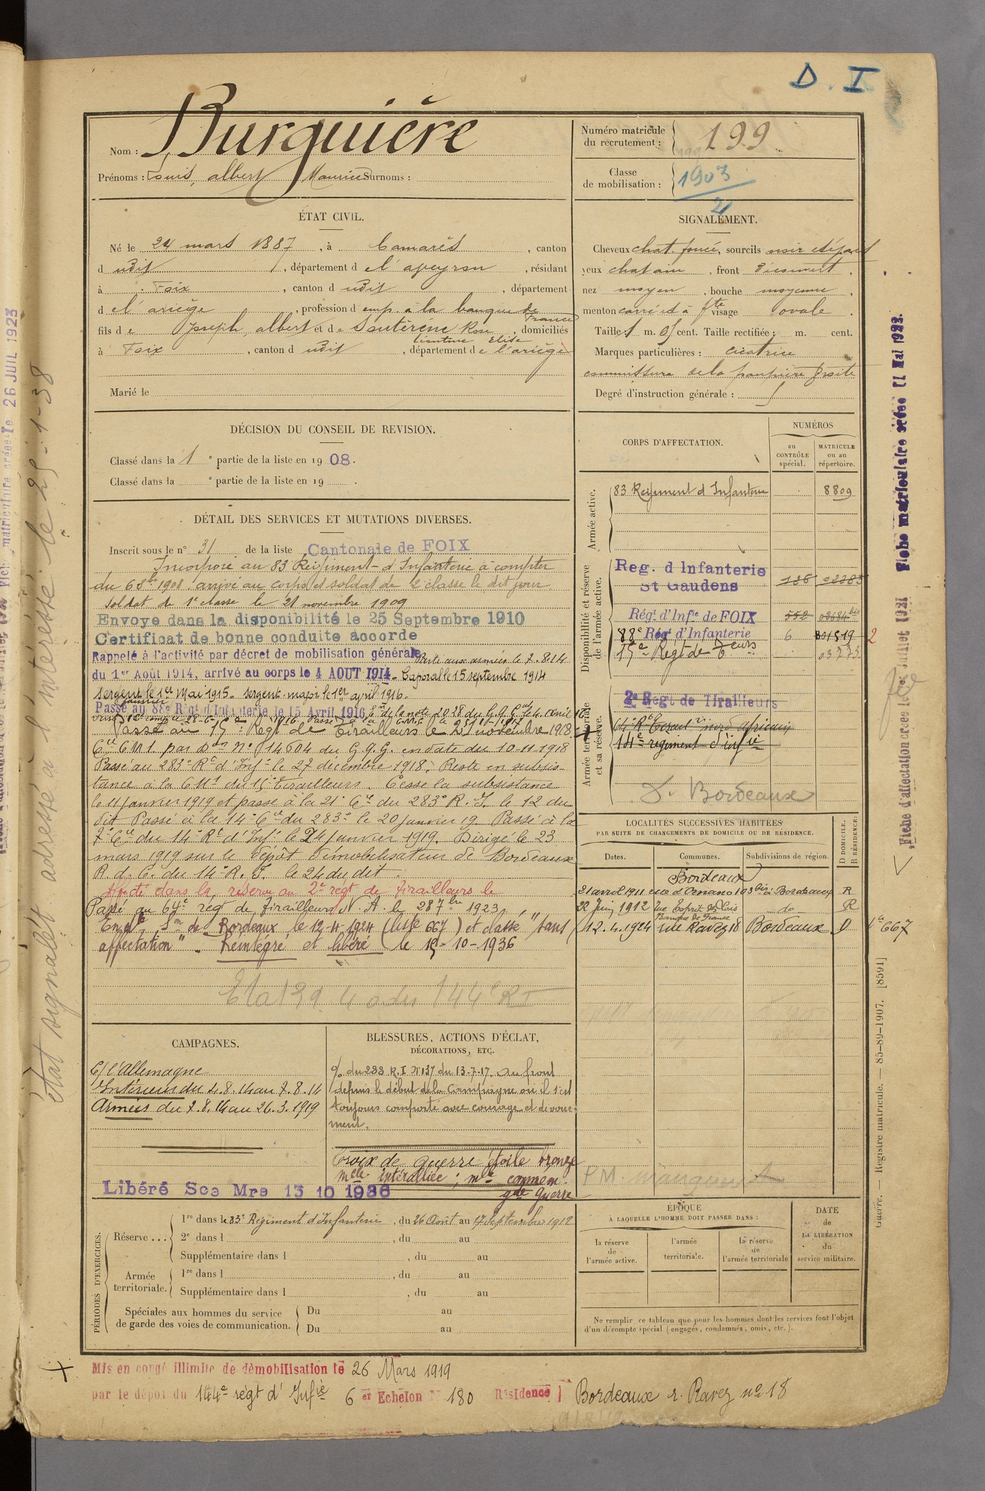 D. I
Nom : Burguière
Prénoms : Louis, albert Maurice Surnoms :
Numéro matricule du recrutement : 199
Classe de mobilisation : 1903
ÉTAT CIVIL.
Né le 24 mars 1887, à Camarès, canton
d udit, département d e l'aveyron, résidant
à Foix, canton d udit, département
d e l'ariège, profession d emp. à la banque de France
fils de Joseph, albert et de Sautérene Rose, domiciliés
à Foix, canton d udit, département d e l'ariège
Marié le
SIGNALEMENT.
Cheveux chat. foncé, sourcils noir
yeux chatain, front
nez moyen, bouche moyenne
menton visage ovale.
Taille 1 m. cent. Taille rectifiée : m. cent.
Marques particulières : cicatrice
commissure de la paupière droite
Degré d'instruction générale :
DÉCISION DU CONSEIL DE REVISION.
Classé dans la 1e partie de la liste en 1908.
Classé dans la e partie de la liste en 19 .
DÉTAIL DES SERVICES ET MUTATIONS DIVERSES.
Inscrit sous le n° 31 de la liste Cantonale de FOIX
Incorporé au 83 Régiment d'Infanterie à compter
du 1908. arrivé au corps et soldat de 2e classe le dit jour
Soldat de 1e classe le 21 novembre 1909
Envoyé dans la disponibilité le 25 Septembre 1910
Certificat de bonne conduite accordé
Rappelé à l'activité par décret de mobilisation générale
du 1er Août 1914, arrivé au corps le 4 AOUT 1914. Caporal le 15 septembre 1914
Sergent le 1er Mai 1915. Sergent-major le 1er avril 1916.
Passé au 88e Régt d'Infanterie le 15 Avril 1916
Passé au 15e Régt de Tirailleurs le novembre 1918
Cie C.M.1. par Don N° 14604 du G.Q.G. en date du 10-11-1918
Passé au 283e Rt d'Infie le 27 décembre 1918. Reste en subsis-
tance à la C.M.1 du 15e Tirailleurs. Cesse la subsistance
le 11 janvier 1919 et passe à la 21e Cie du 283e R.I. le 12 du
dit. Passé à la 14e Cie du 283e le 20 janvier 19. Passé à la
7e Cie du 14e Rt d'Infie le 24 janvier 1919. Dirigé le 23
mars 1919 sur le Dépôt démobilisateur de Bordeaux
R.d.C. du 14e R.I. le 24 du dit.
Affecté dans la réserve au 2e régt de tirailleurs le
Passé au 64e rég de tirailleurs N.A. le 28 7bre 1923
Empé Son de Bordeaux le 12-4-1924 (liste 667) et classé "sans
affectation". Réintégré et libéré le 15-10-1936
CORPS D'AFFECTATION.
NUMÉROS
AU CONTRÔLE spécial.
MATRICULE ou au répertoire.
Armée active.
83 Régiment d'Infanterie 8809
Disponibilité et réserve de l'armée active.
Reg. d Infanterie
St Gaudens
Rég.t d'Inf.ie de FOIX
88e Régt d'Infanterie 6
15e Regt de
Armée territoriale et sa réserve.
2e Regt de Tirailleurs
144e régiment d'infie
S. Bordeaux
LOCALITÉS SUCCESSIVES HABITÉES
PAR SUITE DE CHANGEMENTS DE DOMICILE OU DE RÉSIDENCE.
Dates. Communes. Subdivisions de région. D DOMICILE. R RÉSIDENCE.
Bordeaux
21 avril 1911 rue d'Ornano 103 bis à Bordeaux R
22 Juin 1912 rue Esprit des Lois do R
Banque de France
12.4.1924 rue Ravez 18 Bordeaux D Le 667
CAMPAGNES.
C/ l'Allemagne
Intérieur du 4.8.14 au 7.8.14
Armées du 7.8.14 au 26.3.1919
BLESSURES, ACTIONS D'ÉCLAT,
DÉCORATIONS, ETC.
O/ du 233 R.I N°137 du 13.7.17. Au front
depuis le début de la Campagne où il s'est
toujours comporté avec courage et dévoue-
ment.
Croix de guerre étoile bronze
mlle interalliée ; mlle commém.
gde guerre
P.M. manquent
Libéré Scs Mre 13 10 1936
PÉRIODES D'EXERCICES.
Réserve... 1re dans le 33e Régiment d'Infanterie, du 26 Août au 17 Septembre 1912
2e dans l , du au
Supplémentaire dans l , du au
Armée territoriale. 1re dans l , du au
Supplémentaire dans l , du au
Spéciales aux hommes du service de garde des voies de communication. Du au
Du au
ÉPOQUE
A LAQUELLE L'HOMME DOIT PASSER DANS :
la réserve de l'armée active. l'armée territoriale. la réserve de l'armée territoriale
DATE de LA LIBÉRATION du service militaire.
Ne remplir ce tableau que pour les hommes dont les services font l'objet
d'un décompte spécial (engagés, condamnés, omis, etc.).
Mis en congé illimité de démobilisation le 26 Mars 1919
par le dépôt du 144e régt d'Infie 6 er Echelon N° 180 Résidence Bordeaux r. Ravez n° 18
État signalétique adressé à l'intéressé le 25-1-38
Fiche matriculaire créée le 11 Mai 1922.
Fiche d'affectation créée le Juillet 1921
Guerre. — Registre matricule. — 85-89-1907. [8591]